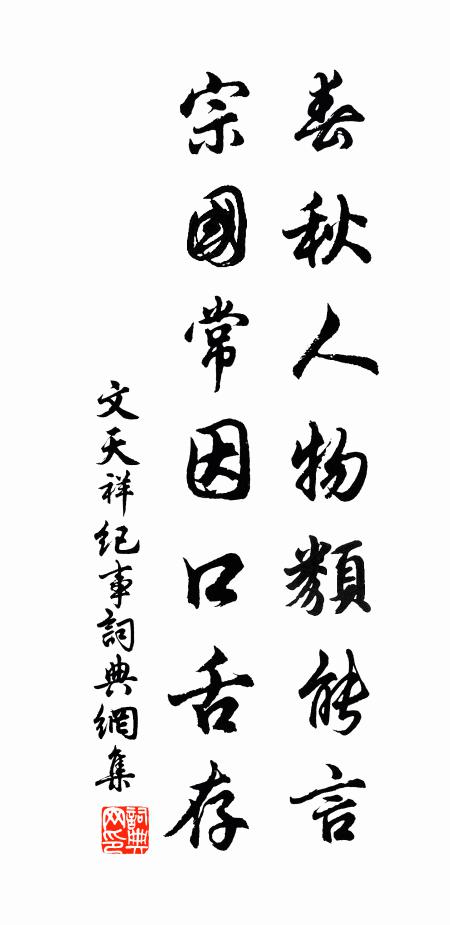 春秋人物類能言
宗國常因口舌存
文天祥紀事詞典網集
詞典網印